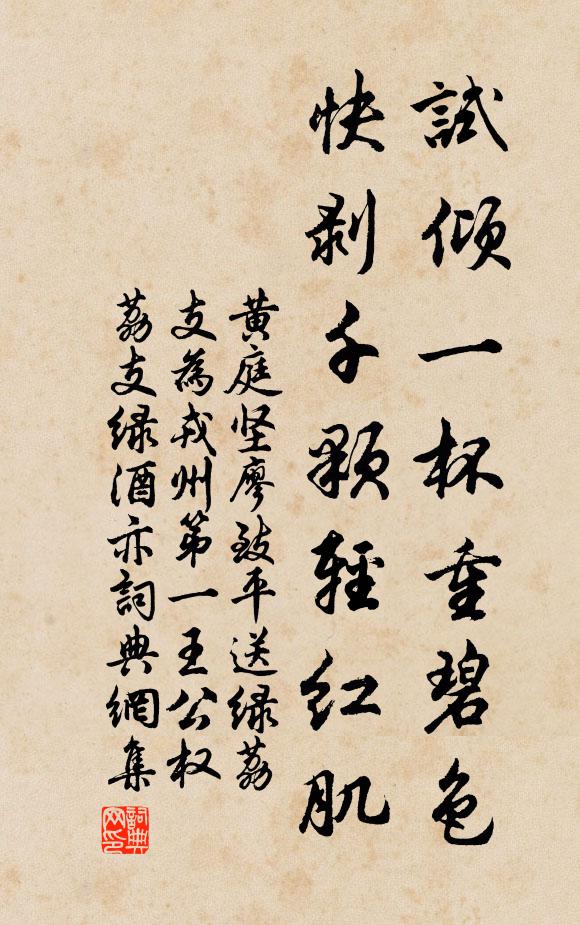 試傾一杯重碧色
快剝千顆輕紅肌
黄庭坚廖致平送绿荔
支為戎州第一王公权
荔支绿酒亦詞典網集
詞典
网印